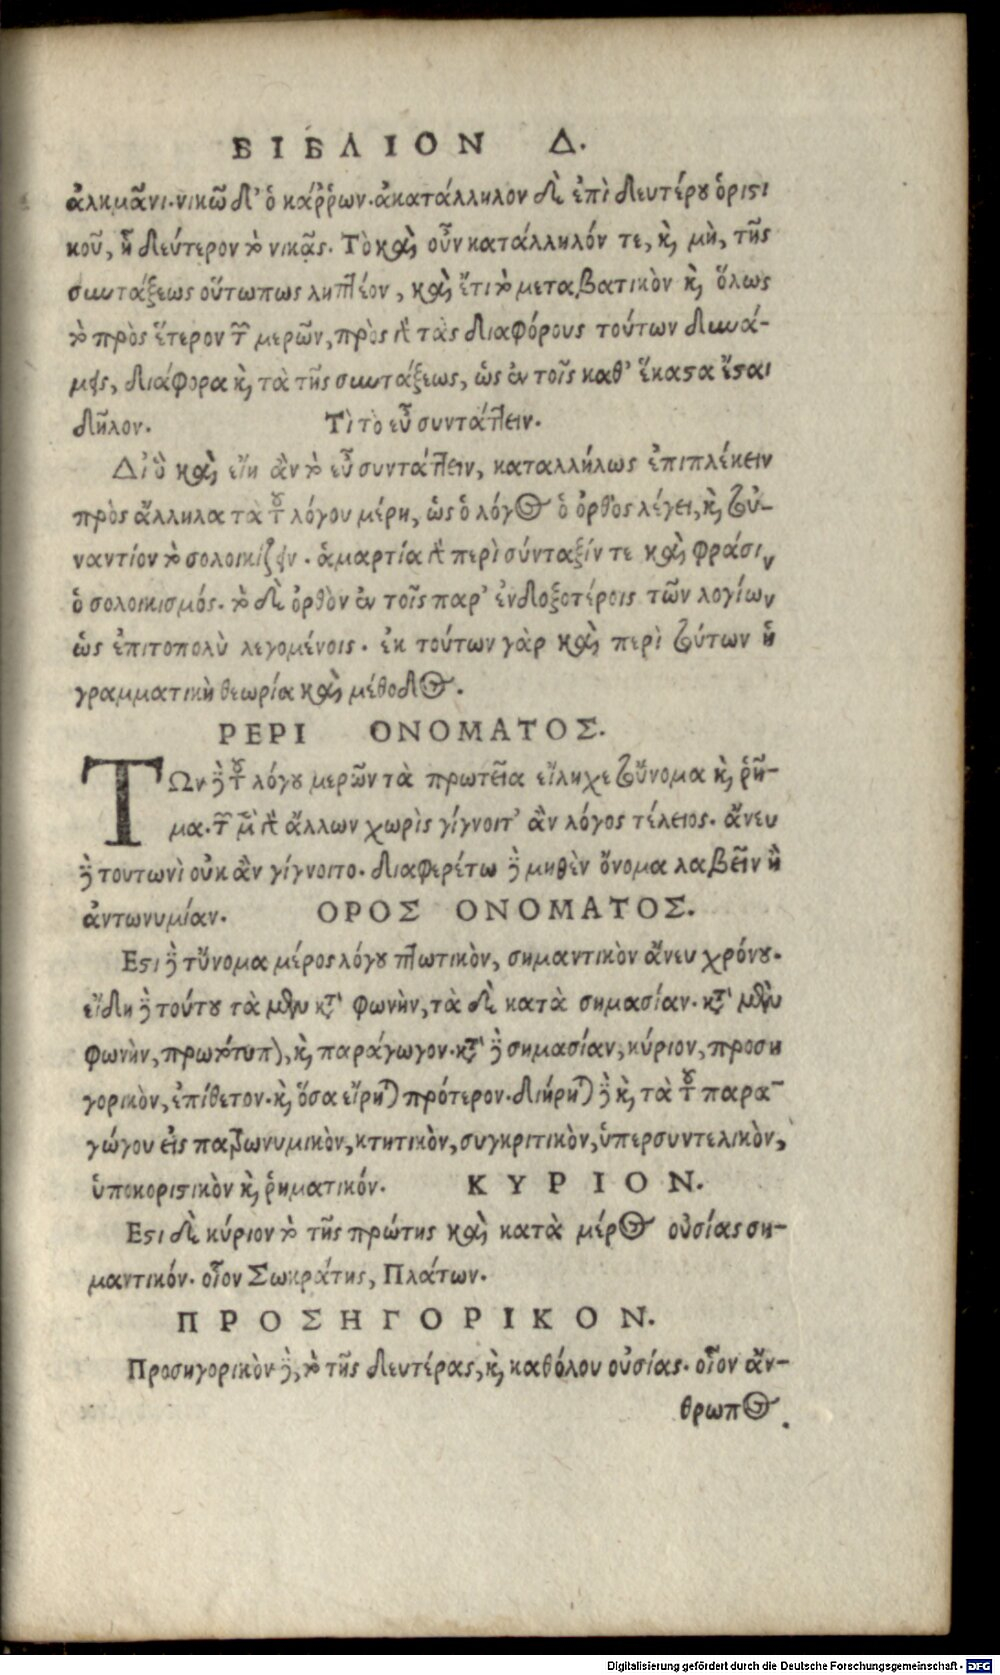 ΒΙΒΛΙΟΝ Δ.
ἀλκμᾶνι. νικῶ δ' ὁ κάῤῥων. ἀκατάλληλον δὲ ἐπὶ δευτέρου ὁριστι
κοῦ, ἢ δεύτερον τὸ νικᾷς. Τὸ καὶ οὖν κατάλληλόν τε, καὶ μὴ, τῆς
συντάξεως οὕτωπως ληπτέον, καὶ ἔτι τὸ μεταβατικὸν καὶ ὅλως
τὸ πρὸς ἕτερον τῶν μερῶν, πρὸς δὲ τὰς διαφόρους τούτων δυνά-
μεις, διάφορα καὶ τὰ τῆς συντάξεως, ὡς ἐν τοῖς καθ' ἕκαστα ἔσται
δῆλον. Τὶ τὸ εὖ συντάττειν.
Δι' ὃ καὶ εἴη ἂν τὸ εὖ συντάττειν, καταλλήλως ἐπιπλέκειν
πρὸς ἄλληλα τὰ τοῦ λόγου μέρη, ὡς ὁ λόγος ὁ ὀρθὸς λέγει, καὶ τοὐ-
ναντίον τὸ σολοικίζειν. ἁμαρτία δὲ περὶ σύνταξίν τε καὶ φράσιν
ὁ σολοικισμός. τὸ δὲ ὀρθὸν ἐν τοῖς παρ' ἐνδοξοτέροις τῶν λογίων
ὡς ἐπιτοπολὺ λεγομένοις. ἐκ τούτων γὰρ καὶ περὶ τούτων ἡ
γραμματικὴ θεωρία καὶ μέθοδος.
ΡΕΡΙ ΟΝΟΜΑΤΟΣ.
ΤΩν δὲ τοῦ λόγου μερῶν τὰ πρωτεῖα εἴληχε τοὔνομα καὶ ῥῆ-
μα. τῶν μὲν δὲ ἄλλων χωρὶς γίγνοιτ' ἂν λόγος τέλειος. ἄνευ
δὲ τουτωνὶ οὐκ ἂν γίγνοιτο. διαφερέτω δὲ μηθὲν ὄνομα λαβεῖν ἢ
ἀντωνυμίαν. ΟΡΟΣ ΟΝΟΜΑΤΟΣ.
Εστι δὲ τὔνομα μέρος λόγου πτωτικὸν, σημαντικὸν ἄνευ χρόνου.
εἴδη δὲ τούτου τὰ μὲν κατὰ φωνὴν, τὰ δὲ κατὰ σημασίαν. κατὰ μὲν
φωνὴν, πρωτότυπον, καὶ παράγωγον. κατὰ δὲ σημασίαν, κύριον, προση
γορικὸν, ἐπίθετον. καὶ ὅσα εἴρηται πρότερον. διήρηται δὲ καὶ τὰ τοῦ παρα-
γώγου εἰς πατρωνυμικὸν, κτητικὸν, συγκριτικὸν, ὑπερσυντελικὸν,
ὑποκοριστικὸν καὶ ῥηματικόν. ΚΥΡΙΟΝ.
Εστι δὲ κύριον τὸ τῆς πρώτης καὶ κατὰ μέρος οὐσίας ση-
μαντικόν. οἷον Σωκράτης, Πλάτων.
ΠΡΟΣΗΓΟΡΙΚΟΝ.
Προσηγορικὸν δὲ, τὸ τῆς δευτέρας, καὶ καθόλου οὐσίας. οἷον ἄν-
θρωπος.
Digitalisierung gefördert durch die Deutsche Forschungsgemeinschaft - DFG